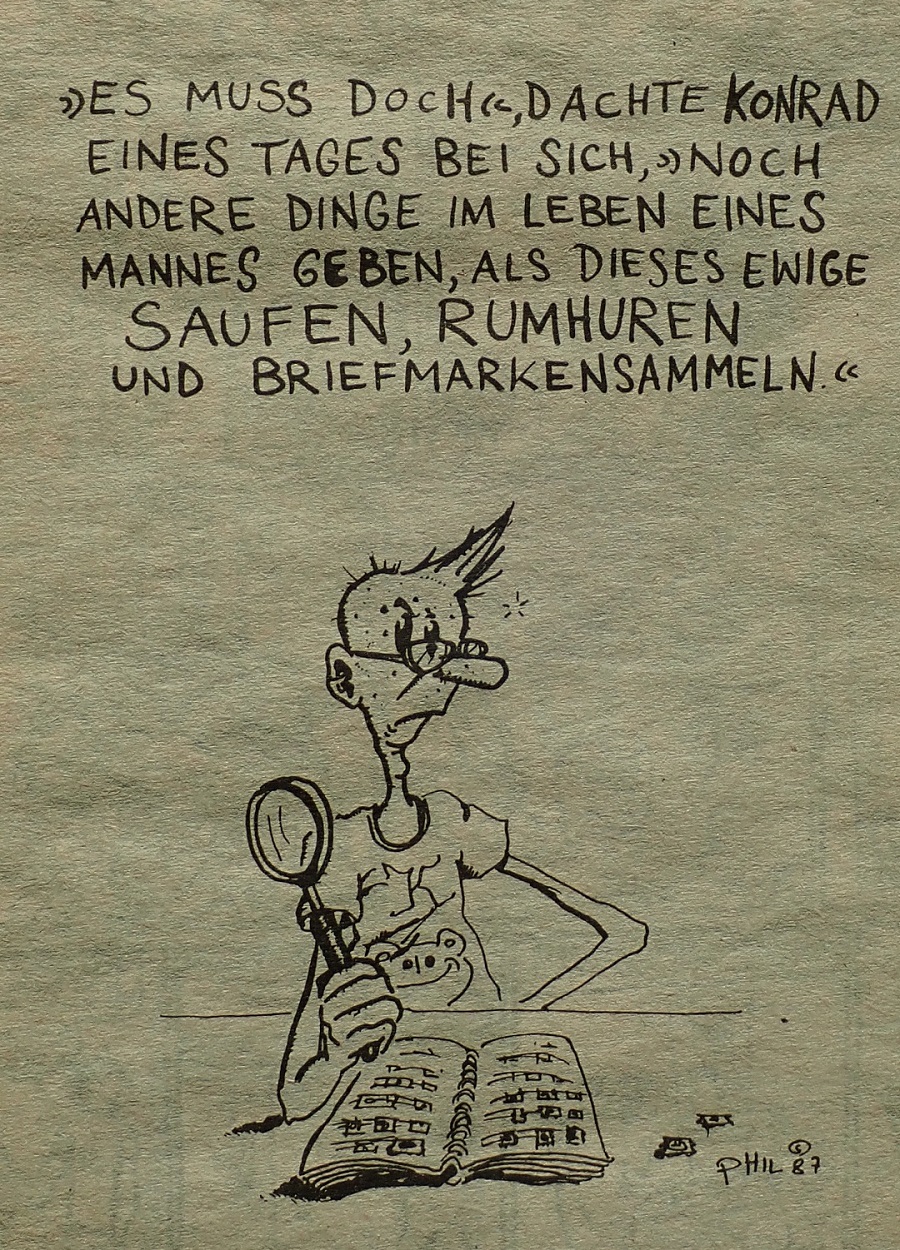 »ES MUSS DOCH«, DACHTE KONRAD
EINES TAGES BEI SICH, »NOCH
ANDERE DINGE IM LEBEN EINES
MANNES GEBEN, ALS DIESES EWIGE
SAUFEN, RUMHUREN
UND BRIEFMARKENSAMMELN.«
PHIL © 87